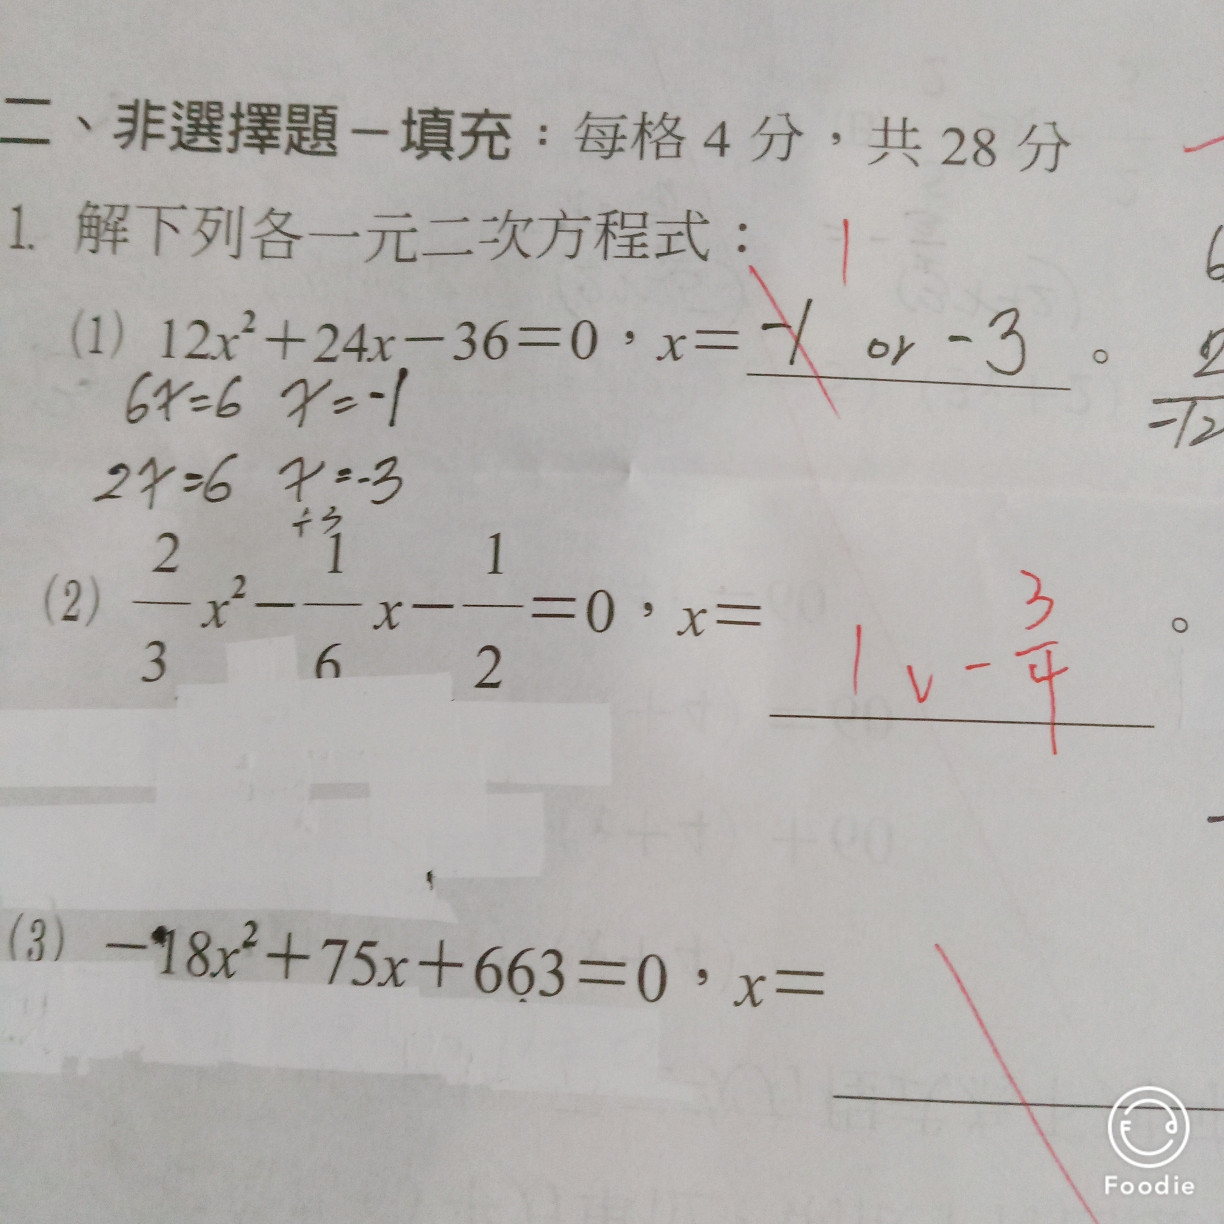 二、非選擇題－填充：每格 4 分，共 28 分
1. 解下列各一元二次方程式：
1
(1) 12x²+24x－36＝0，x＝ -1 or -3 。
6x=6 x=-1
2x=6 x=-3
÷3
(2) 2/3 x²－1/6 x－1/2＝0，x＝ 1 v -3/4 。
(3) －18x²+75x+663＝0，x＝
6
2
-12
Foodie